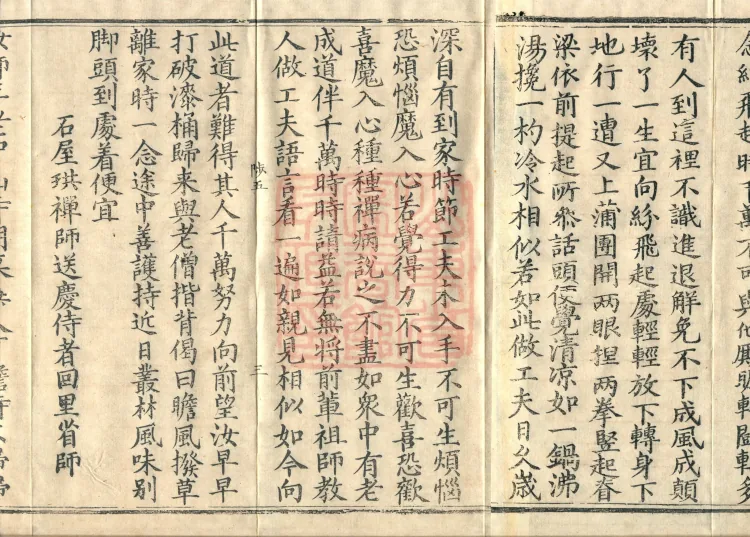 念紛飛起時千萬不可與他廝
有人到這裡不識進退解免不下成風成顛
壞了一生宜向紛飛起處輕輕放下轉身下
地行一遭又上蒲團開兩眼捏兩拳竪起脊
梁依前提起所叅話頭便覺清凉如一鍋沸
湯攙一杓冷水相似若如此做工夫日久歲
深自有到家時節工夫未入手不可生煩惱
恐煩惱魔入心若覺得力不可生歡喜恐歡
喜魔入心種種禪病說之不盡如衆中有老
成道伴千萬時時請益若無將前輩祖師教
人做工夫語言看一遍如親見相似如今向
陟五 三
此道者難得其人千萬努力向前望汝早早
打破漆桶歸来與老僧揩背偈曰瞻風撥草
離家時一念途中善護持近日叢林風味別
脚頭到處着便宜
石屋珙禪師送慶侍者回里省師